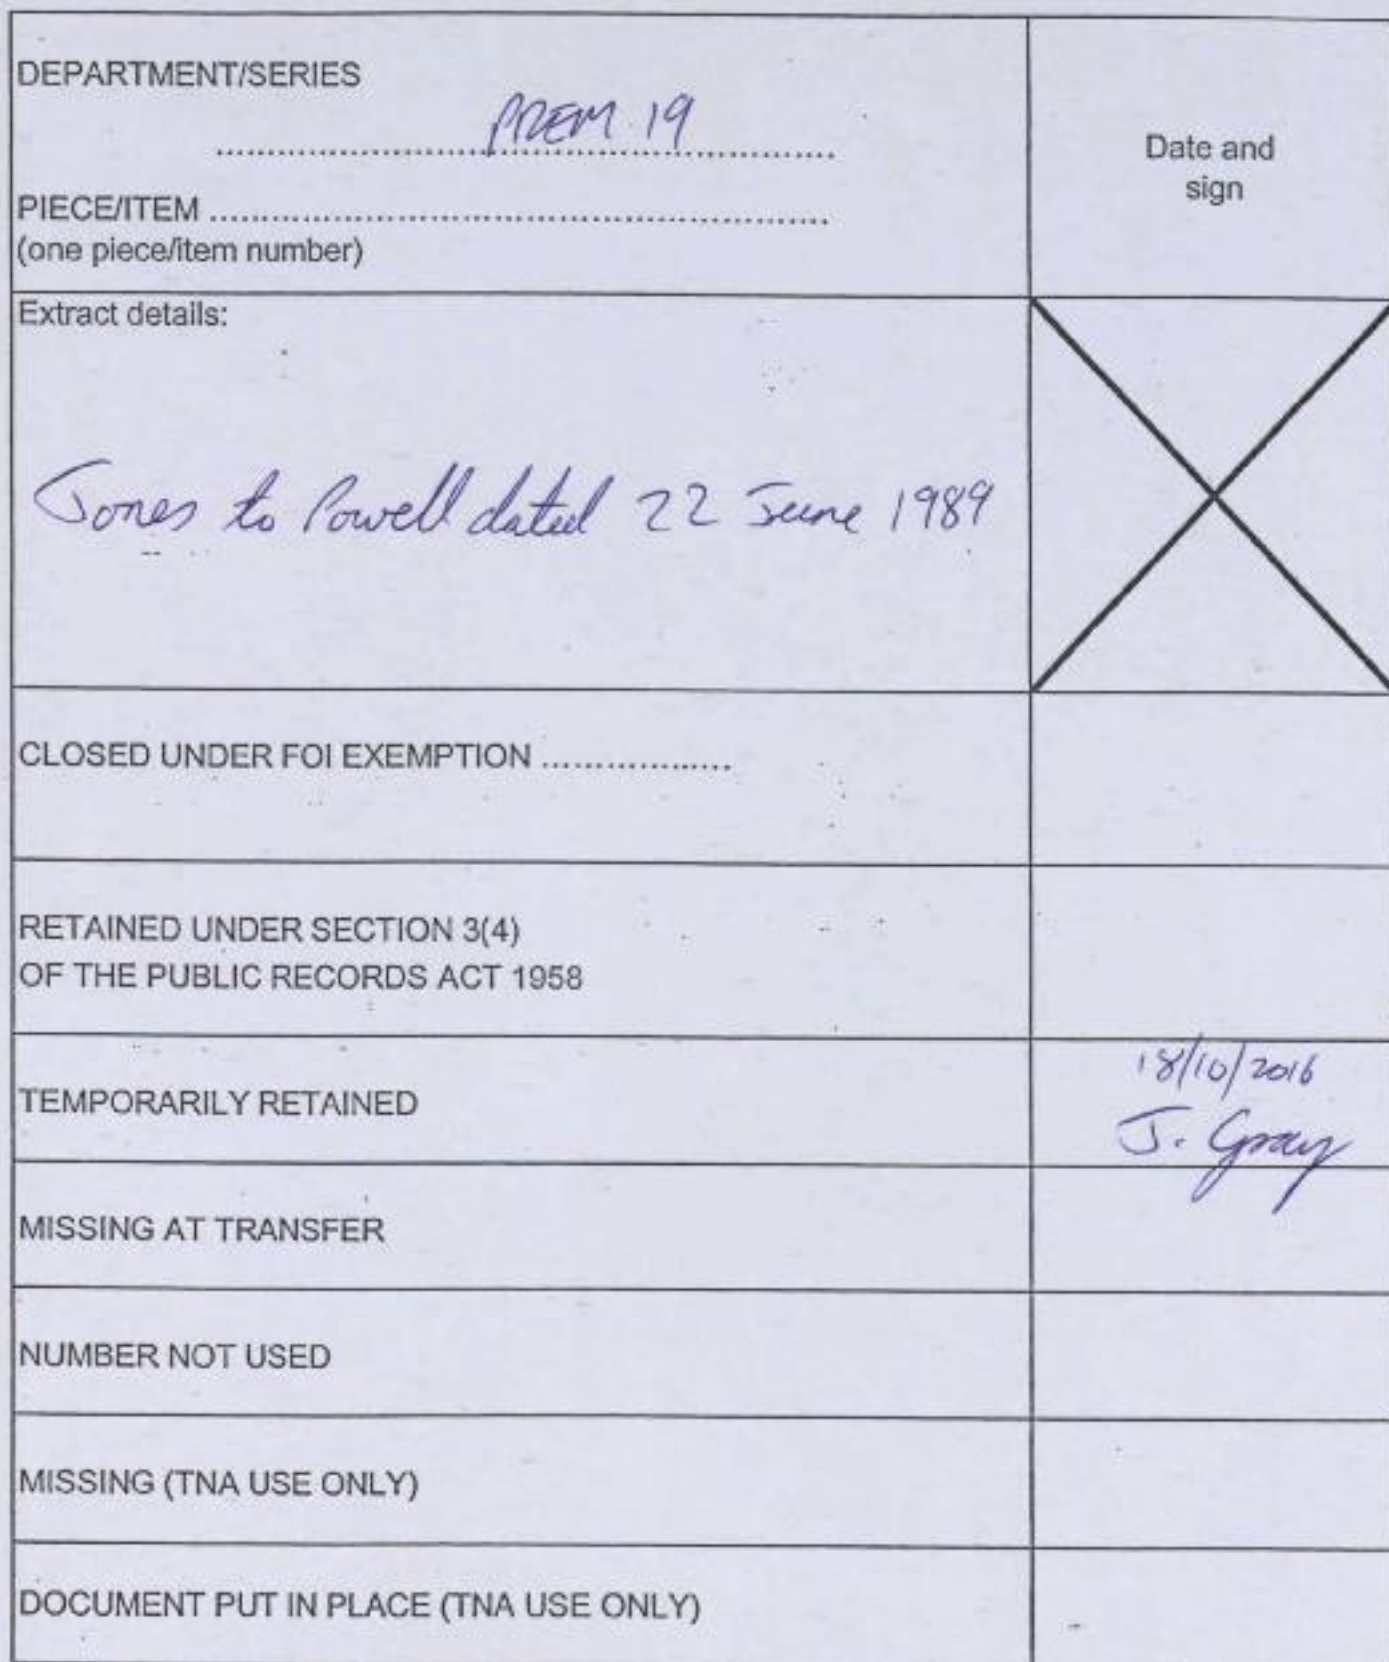 DEPARTMENT/SERIES
PREM 19
Date and
sign
PIECE/ITEM
(one piece/item number)
Extract details:
Jones to Powell dated 22 June 1989
CLOSED UNDER FOI EXEMPTION
RETAINED UNDER SECTION 3(4)
OF THE PUBLIC RECORDS ACT 1958
TEMPORARILY RETAINED
18/10/2016
J. Gray
MISSING AT TRANSFER
NUMBER NOT USED
MISSING (TNA USE ONLY)
DOCUMENT PUT IN PLACE (TNA USE ONLY)